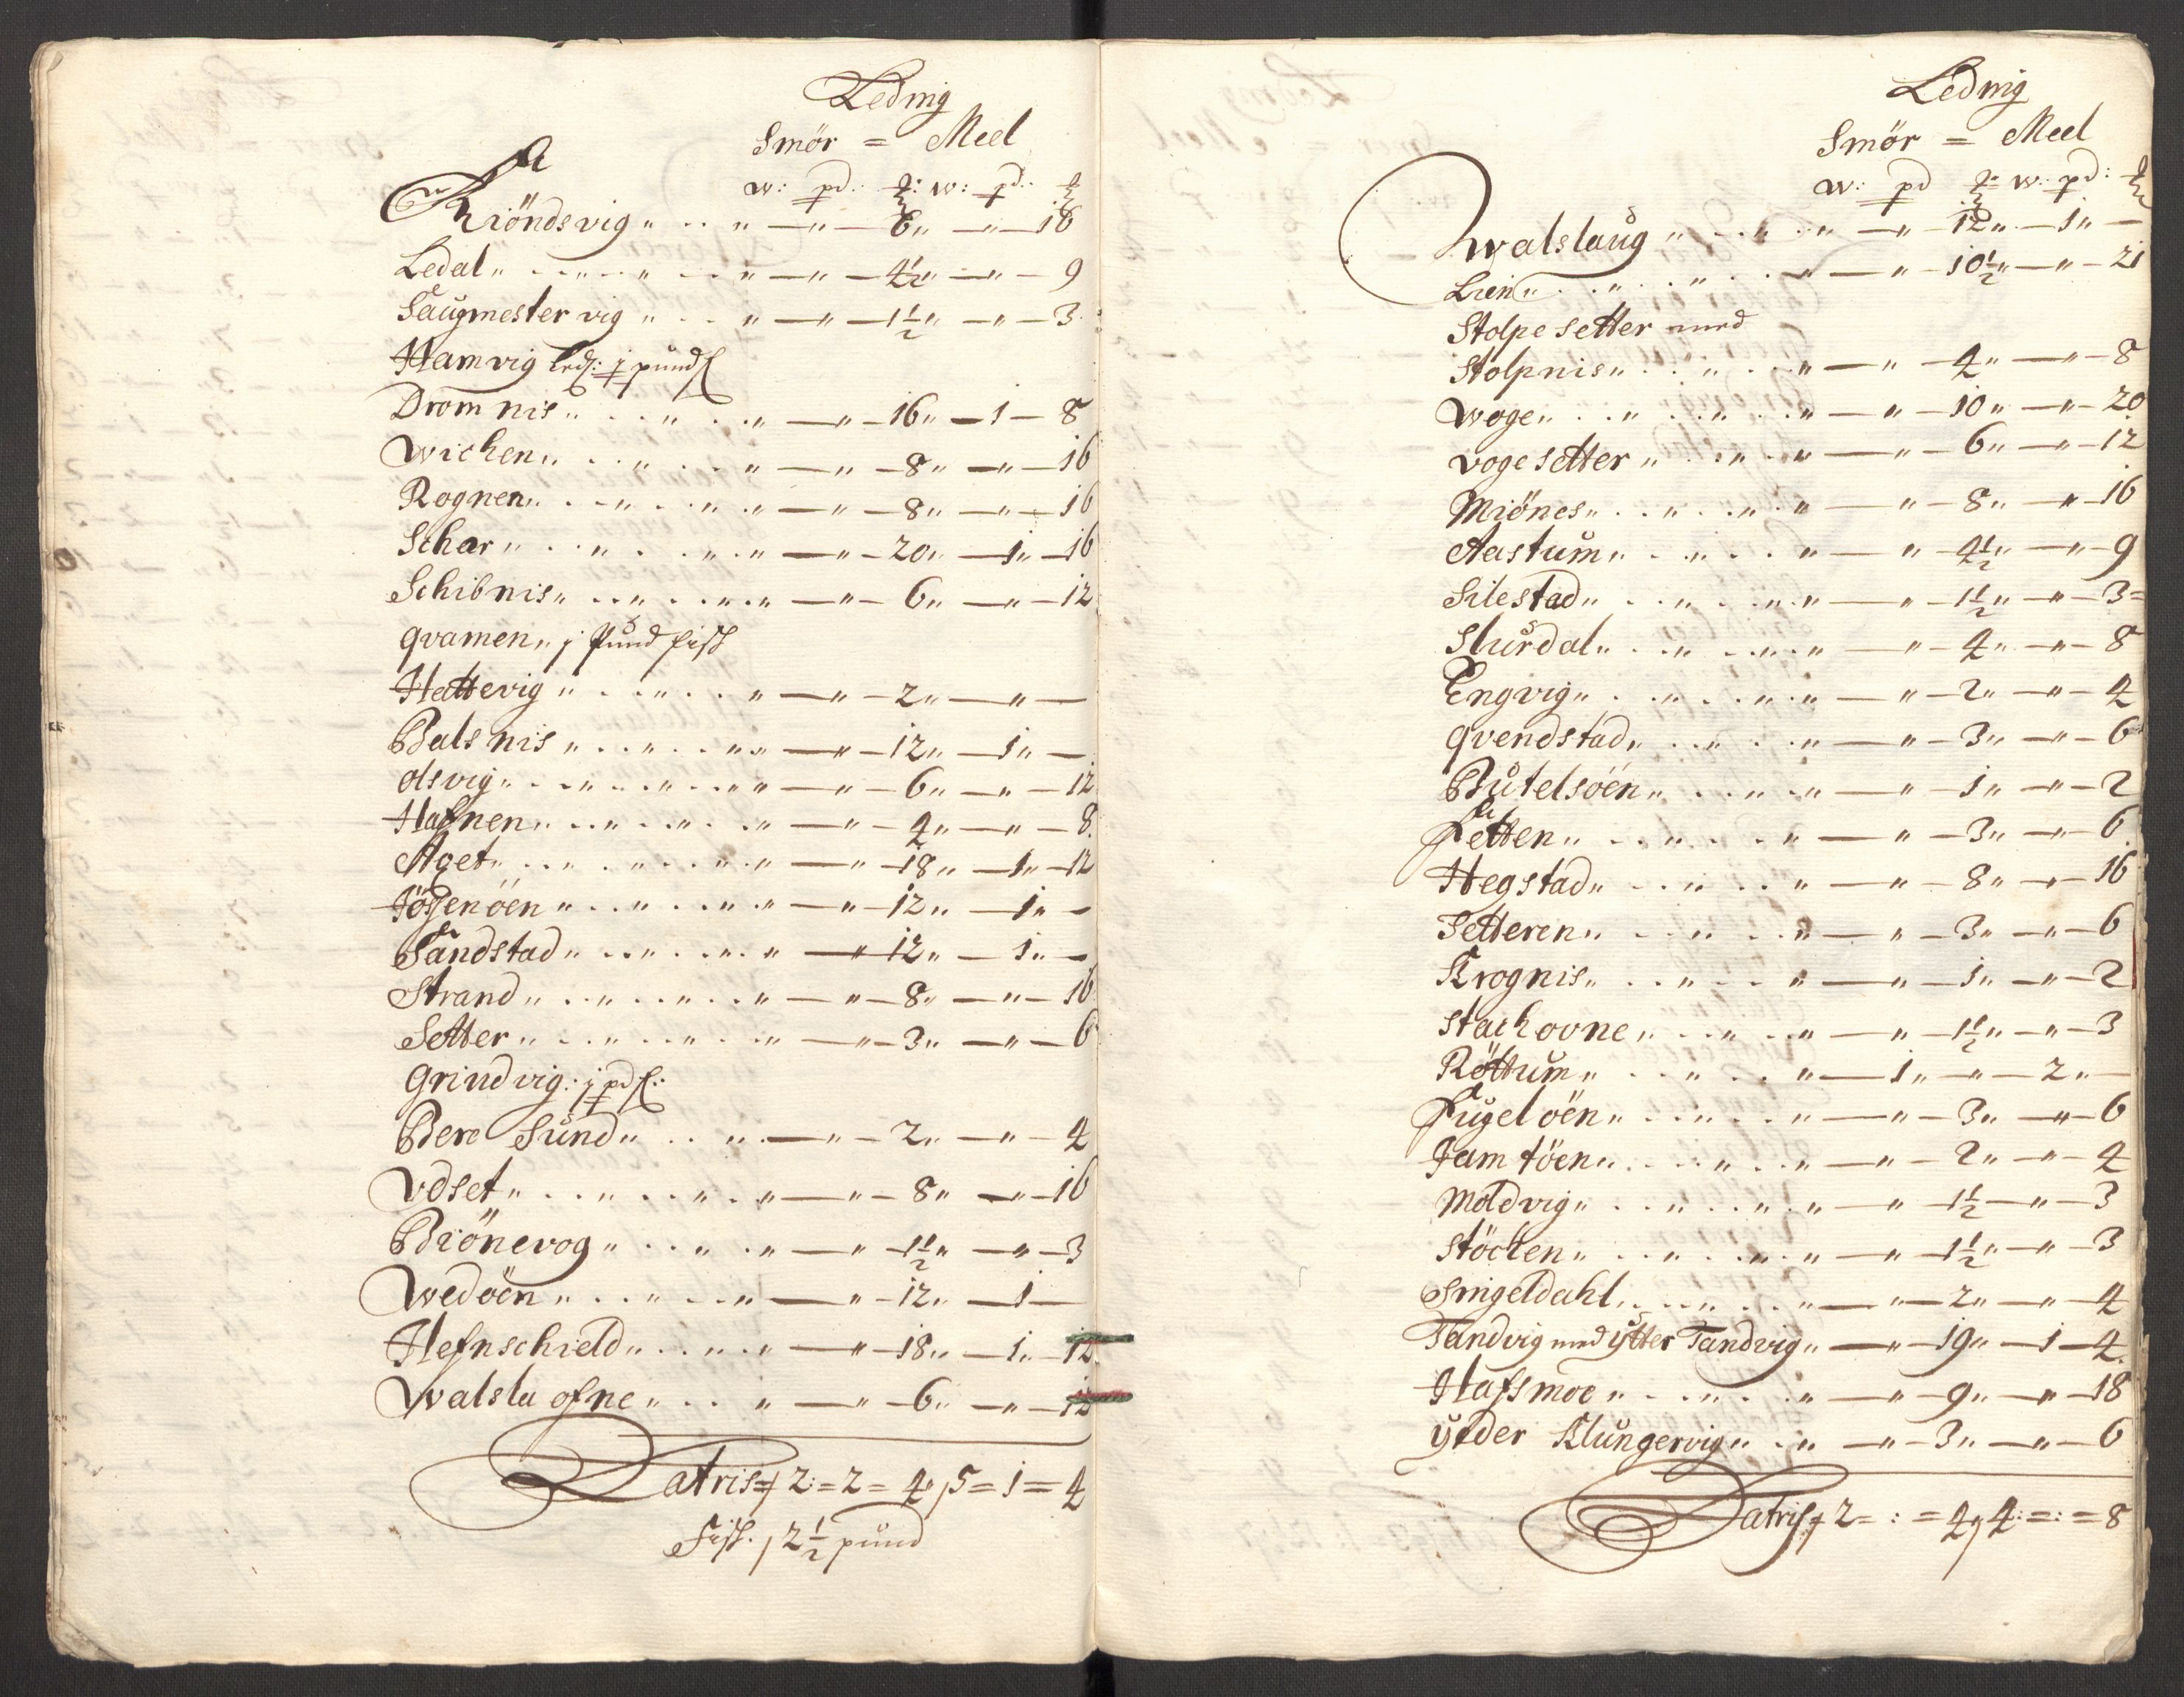 Leding
Smör = Meel
w: pd: ℔: w: pd: ℔
Kiöndsvig „ . . „ — „ — 8 „ — „ — 16
Ledal „ . . „ . . „ — „ — 4½ „ — „ — 9
Saugmester vig „ . . „ — „ — 1½ „ — „ — 3
Hamvig led: j pund
Drom nis „ . . „ . „ — „ — 16 „ — 1 — 8
Wichen „ . . „ . . „ — „ — 8 „ — „ — 16
Rognen „ . . „ . . „ — „ — 8 „ — „ — 16
Schar „ . . „ . . „ — „ — 20 „ — 1 „ — 16
Schibnis „ . . „ . . „ — „ — 6 „ — „ — 12
qvamen „ j Pund fisk
Hattevig „ . . „ . . „ — „ — 2 „ — „ —
Balsnis „ . . „ . . „ — „ — 12 „ — 1 „ —
olsvig „ . . „ . . „ — „ — 6 „ — „ — 12
Hafnen „ . . „ . . „ — „ — 4 „ — „ — 8
Aget „ . . „ . . „ — „ — 18 „ — 1 „ — 12
Jössenöen „ . . „ . . „ — „ — 12 „ — 1 „ —
Sandstad „ . . „ . . „ — „ — 12 „ — 1 „ —
Strand „ . . „ . . „ — „ — 8 „ — „ — 16
Setter „ . . „ . . „ — „ — 3 „ — „ — 6
Grindvig: j pd f:
Bere Sund „ . . „ — „ — 2 „ — „ — 4
Vdset „ . . „ . . „ — „ — 8 „ — „ — 16
Biönevog „ . . „ . „ — „ — 1½ „ — „ — 3
Wedöen „ . . „ . . „ — „ — 12 „ — 1 —
Hefnschield „ . . „ . „ — „ — 18 „ — 1 „ — 12
Walsla ofne „ . . „ — „ — 6 „ — „ — 12
Latris 2 = 2 = 4 , 5 = 1 = 4
Fisk. , 2½ pund
Leding
Smör = Meel
w: pd ℔: w: pd: ℔
Walslaug „ . . „ — „ — 12 „ — 1 „ —
Lien „ . . „ . . „ — „ — 10½ „ — „ — 21
Stolpe setter med
Stolpnis „ . . „ . . „ — „ — 4 „ — „ — 8
Woge „ . . „ . . „ — „ — 10 „ — „ — 20
voge setter „ . . „ — „ — 6 „ — „ — 12
Miönes „ . . „ . . „ — „ — 8 „ — „ — 16
Aastum „ . . „ . . „ — „ — 4½ „ — „ — 9
Silestad „ . . „ . . „ — „ — 1½ „ — „ — 3 =
Slurdal „ . . „ . . „ — „ — 4 „ — „ — 8
Engvig „ . . „ . . „ — „ — 2 „ — „ — 4
qvendstad „ . . „ . . „ — „ — 3 „ — „ — 6
Butelsöen „ . . „ . „ — „ — 1 „ — „ — 2
Fetten „ . . „ . . „ — „ — 3 „ — „ — 6
Hegstad „ . . „ . . „ — „ — 8 „ — „ — 16
Setteren „ . . „ . . „ — „ — 3 „ — „ — 6
Krognis „ . . „ . . „ — „ — 1 „ — „ — 2
stachovne „ . . „ . „ — „ — 1½ „ — „ — 3
Röttum „ . . „ . . „ — 1 „ — „ — 2 „ —
Fugelöen „ . . „ . . „ — „ — 3 „ — „ — 6
Jamtöen „ . . „ . . „ — „ — 2 „ — „ — 4
Moldvig „ . . „ . . „ — „ — 1½ — „ — 3
Stöchen „ . . „ . . „ — „ — 1½ „ — „ — 3
Singeldahl „ . . „ . . „ — „ — 2 „ — „ — 4
Tandvig med ÿtter Tandvig „ — „ — 19 „ — 1 — 4
Hafsmoe „ . . „ . . „ — „ — 9 „ — „ — 18
ÿtder Klungervig „ . „ — „ — 3 „ — „ — 6
Latris 2 = : = 4 , 4 : = : = 8